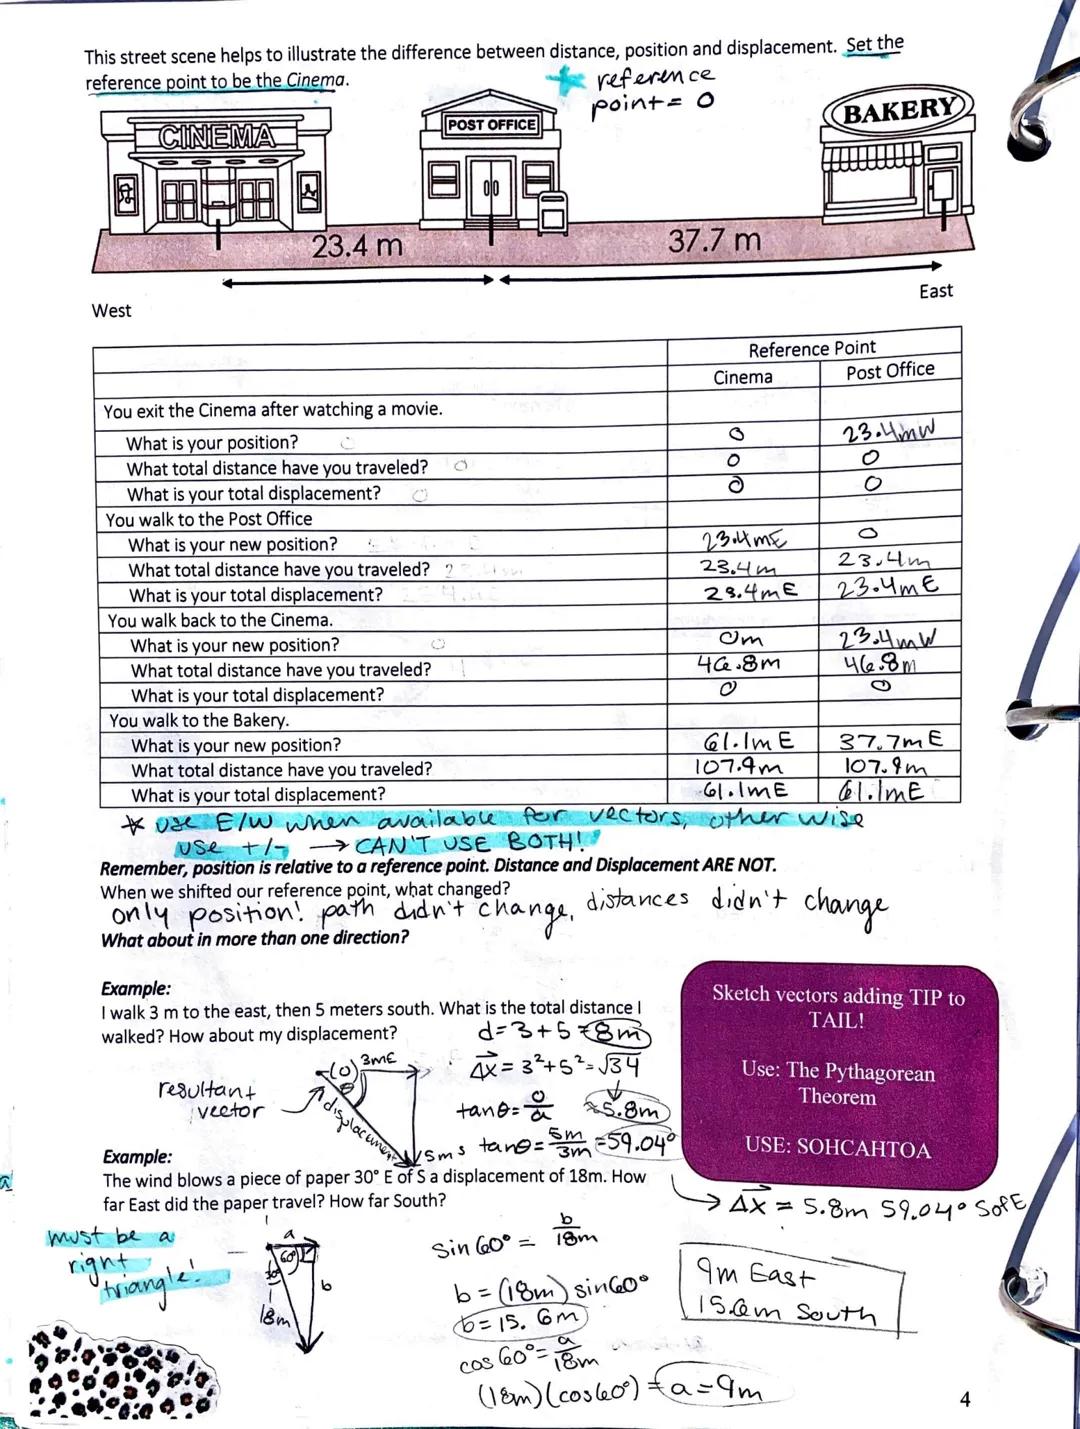 This street scene helps to illustrate the difference between distance, position and displacement. Set the
reference point to be the Cinema.
* reference
point = 0
CINEMA
POST OFFICE
BAKERY
23.4 m
37.7 m
West
East
Reference Point
Cinema
Post Office
You exit the Cinema after watching a movie.
What is your position? 0 23.4mW
What total distance have you traveled? 0 0 0
What is your total displacement? 0 0 0
You walk to the Post Office
What is your new position? 23.4mE 0
What total distance have you traveled? 23.4m 23.4m
What is your total displacement? 23.4mE 23.4mE
You walk back to the Cinema.
What is your new position? 0m 23.4mW
What total distance have you traveled? 46.8m 46.8m
What is your total displacement? 0 0
You walk to the Bakery.
What is your new position? 61.1mE 37.7mE
What total distance have you traveled? 107.9m 107.9m
What is your total displacement? 61.1mE 61.1mE
* use E/W when available for vectors, other wise
use +/- → CAN'T USE BOTH!
Remember, position is relative to a reference point. Distance and Displacement ARE NOT.
When we shifted our reference point, what changed?
only position! path didn't change, distances didn't change
What about in more than one direction?
Example:
I walk 3 m to the east, then 5 meters south. What is the total distance I
walked? How about my displacement?
d=3+5=8m
Δx = 3²+5² = √34
≈5.8m
tanθ = o/a
tanθ = 5m/3m = 59.04°
(0) 3mE
θ
resultant
vector
displacement
5m S
Sketch vectors adding TIP to
TAIL!
Use: The Pythagorean
Theorem
USE: SOHCAHTOA
→ Δx = 5.8m 59.04° S of E
Example:
The wind blows a piece of paper 30° E of S a displacement of 18m. How
far East did the paper travel? How far South?
must be a
right
triangle!
a
60°
30°
b
18m
sin 60° = b/18m
b = (18m) sin60°
b = 15.6m
cos 60° = a/18m
(18m)(cos60°) = a = 9m
9m East
15.6m South
4